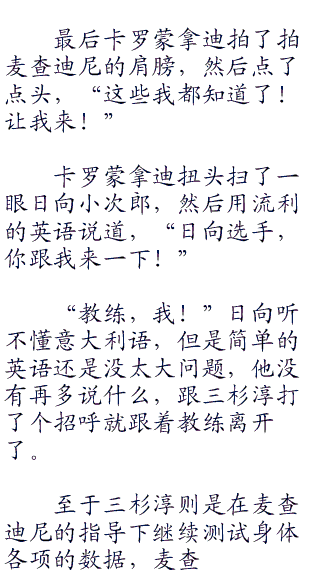 最后卡罗蒙拿迪拍了拍
麦查迪尼的肩膀，然后点了
点头，“这些我都知道了！
让我来！”
卡罗蒙拿迪扭头扫了一
眼日向小次郎，然后用流利
的英语说道，“日向选手，
你跟我来一下！”
“教练，我！”日向听
不懂意大利语，但是简单的
英语还是没太大问题，他没
有再多说什么，跟三杉淳打
了个招呼就跟着教练离开
了。
至于三杉淳则是在麦查
迪尼的指导下继续测试身体
各项的数据，麦查